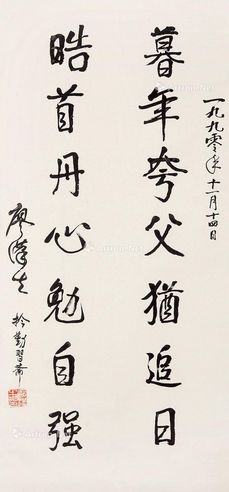 一九九零年十一月十四日
暮年夸父猶追日
皓首丹心勉自强
廖漢生
於勤習齋